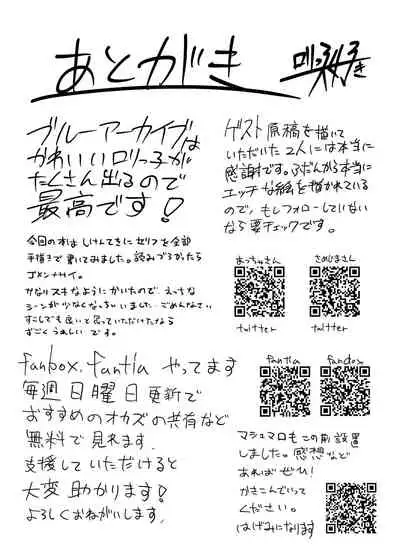 あとがき
ブルーアーカイブは
かわいいロリっ子が
たくさん出るので
最高です!
今回の本はしけんてきにセリフを全部
手描きで書いてみました。読みづらかったら
ゴメンナサイ。
かなりスキなようにかいたので、えっちな
シーンが少なくなっちゃいました…ごめんなさい
すこしでも良いと思っていただけたなら
すごくうれしいです。
ゲスト原稿を描いて
いただいた2人には本当に
感謝です。ふだんから本当に
エッチな絵を描かれている
ので、もしフォローしていない
なら要チェックです。
まっちゃさん
さめじまさん
twitter
twitter
fanbox、fantia やってます
毎週日曜日更新で
おすすめのオカズの共有など
無料で見れます。
支援していただけると
大変助かります!
よろしくおねがいします。
fantia
fanbox
マシュマロもこの前設置
しました。感想など
あればぜひ!
かきこんでいって
ください。
はげみになります